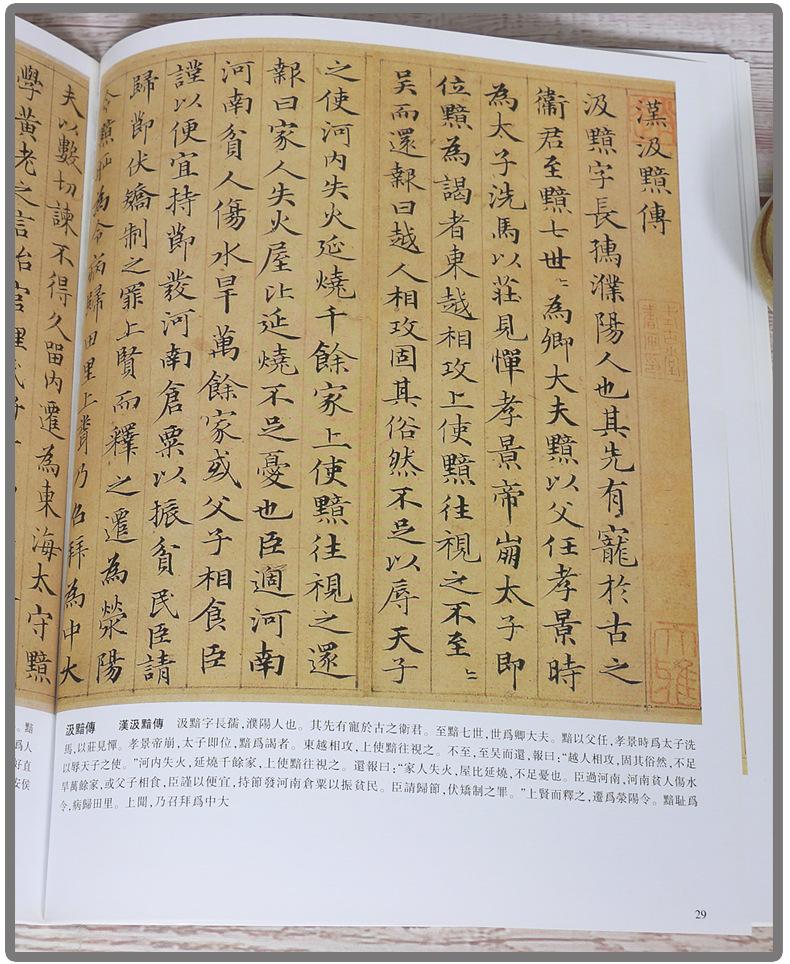 漢汲黯傳
汲黯字長孺濮陽人也其先有寵於古之
衛君至黯七世〻為卿大夫黯以父任孝景時
為太子洗馬以莊見憚孝景帝崩太子即
位黯為謁者東越相攻上使黯往視之不至〻
吴而還報曰越人相攻固其俗然不足以辱天子
之使河内失火延燒千餘家上使黯往視之還
報曰家人失火屋比延燒不足憂也臣適河南
河南貧人傷水旱萬餘家或父子相食臣
謹以便宜持節發河南倉粟以振貧民臣請
歸節伏矯制之罪上賢而釋之遷為滎陽
令黯恥為令病歸田里上聞乃召拜為中大
夫以數切諫不得久留内遷為東海太守黯
學黃老之言治官理民
汲黯傳 漢汲黯傳 汲黯字長孺，濮陽人也。其先有寵於古之衛君。至黯七世，世爲卿大夫。黯以父任，孝景時爲太子洗
馬，以莊見憚。孝景帝崩，太子即位，黯爲謁者。東越相攻，上使黯往視之。不至，至吴而還，報曰：“越人相攻，固其俗然，不足
以辱天子之使。”河内失火，延燒千餘家，上使黯往視之。還報曰：“家人失火，屋比延燒，不足憂也。臣過河南，河南貧人傷水
旱萬餘家，或父子相食，臣謹以便宜，持節發河南倉粟以振貧民。臣請歸節，伏矯制之罪。”上賢而釋之，遷爲滎陽令。黯耻爲
令，病歸田里。上聞，乃召拜爲中大
。黯
爲人
好直
安侯
29